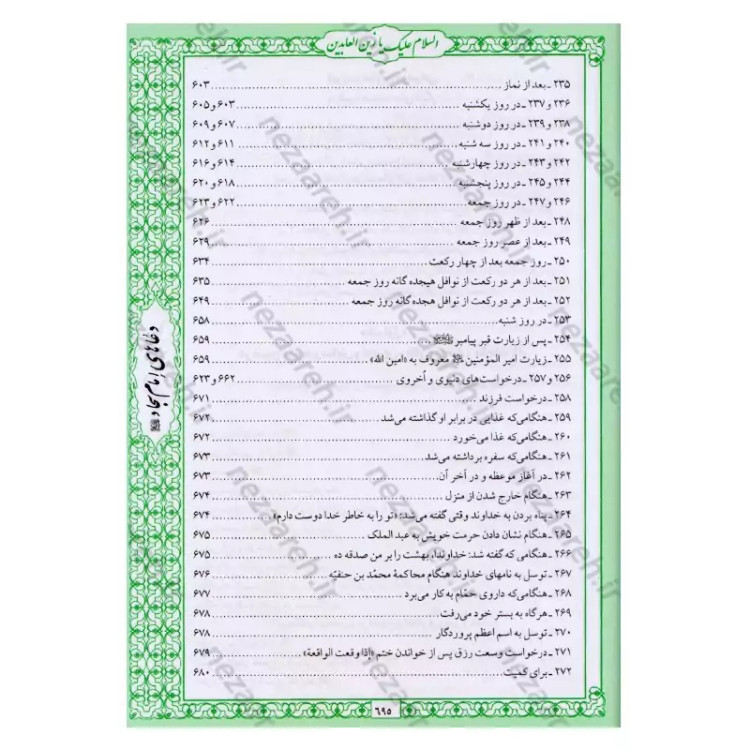 السلام علیک یا زین العابدین
۲۳۵ ـ بعد از نماز ........ ۶۰۳
۲۳۶ و ۲۳۷ ـ در روز یکشنبه ........ ۶۰۳ و ۶۰۵
۲۳۸ و ۲۳۹ ـ در روز دوشنبه ........ ۶۰۷ و ۶۰۹
۲۴۰ و ۲۴۱ ـ در روز سه شنبه ........ ۶۱۱ و ۶۱۲
۲۴۲ و ۲۴۳ ـ در روز چهارشنبه ........ ۶۱۴ و ۶۱۶
۲۴۴ و ۲۴۵ ـ در روز پنجشنبه ........ ۶۱۸ و ۶۲۰
۲۴۶ و ۲۴۷ ـ در روز جمعه ........ ۶۲۲ و ۶۲۳
۲۴۸ ـ بعد از ظهر روز جمعه ........ ۶۲۶
۲۴۹ ـ بعد از عصر روز جمعه ........ ۶۲۹
۲۵۰ ـ روز جمعه بعد از چهار رکعت ........ ۶۳۴
۲۵۱ ـ بعد از هر دو رکعت از نوافل هیجده گانه روز جمعه ........ ۶۳۵
۲۵۲ ـ بعد از هر دو رکعت از نوافل هجده گانه روز جمعه ........ ۶۴۹
۲۵۳ ـ در روز شنبه ........ ۶۵۸
۲۵۴ ـ پس از زیارت قبر پیامبر ﷺ ........ ۶۵۹
۲۵۵ ـ زیارت امیر المؤمنین معروف به «امین الله» ........ ۶۵۹
۲۵۶ و ۲۵۷ ـ درخواست‌های دنیوی و اُخروی ........ ۶۶۲ و ۶۲۳
۲۵۸ ـ درخواست فرزند ........ ۶۷۱
۲۵۹ ـ هنگامی‌که غذایی در برابر او گذاشته می‌شد ........ ۶۷۲
۲۶۰ ـ هنگامی‌که غذا می‌خورد ........ ۶۷۲
۲۶۱ ـ هنگامی‌که سفره برداشته می‌شد ........ ۶۷۳
۲۶۲ ـ در آغاز موعظه و در آخر آن ........ ۶۷۳
۲۶۳ ـ هنگام خارج شدن از منزل ........ ۶۷۴
۲۶۴ ـ پناه بردن به خداوند وقتی گفته می‌شد: «تو را به خاطر خدا دوست دارم» ........ ۶۷۴
۲۶۵ ـ هنگام نشان دادن حرمت خویش به عبد الملک ........ ۶۷۵
۲۶۶ ـ هنگامی‌که گفته شد: خداوندا، بهشت را بر من صدقه ده ........ ۶۷۵
۲۶۷ ـ توسل به نامهای خداوند هنگام محاکمۀ محمّد بن حنفیّه ........ ۶۷۶
۲۶۸ ـ هنگامی‌که داروی حمّام به کار می‌برد ........ ۶۷۷
۲۶۹ ـ هرگاه به بستر خود می‌رفت ........ ۶۷۸
۲۷۰ ـ توسل به اسم اعظم پروردگار ........ ۶۷۸
۲۷۱ ـ درخواست وسعت رزق پس از خواندن ختم «إذا وقعت الواقعة» ........ ۶۷۹
۲۷۲ ـ برای کمیت ........ ۶۸۰
دعاهای امام سجاد
۶۹۵
nezaareh.ir